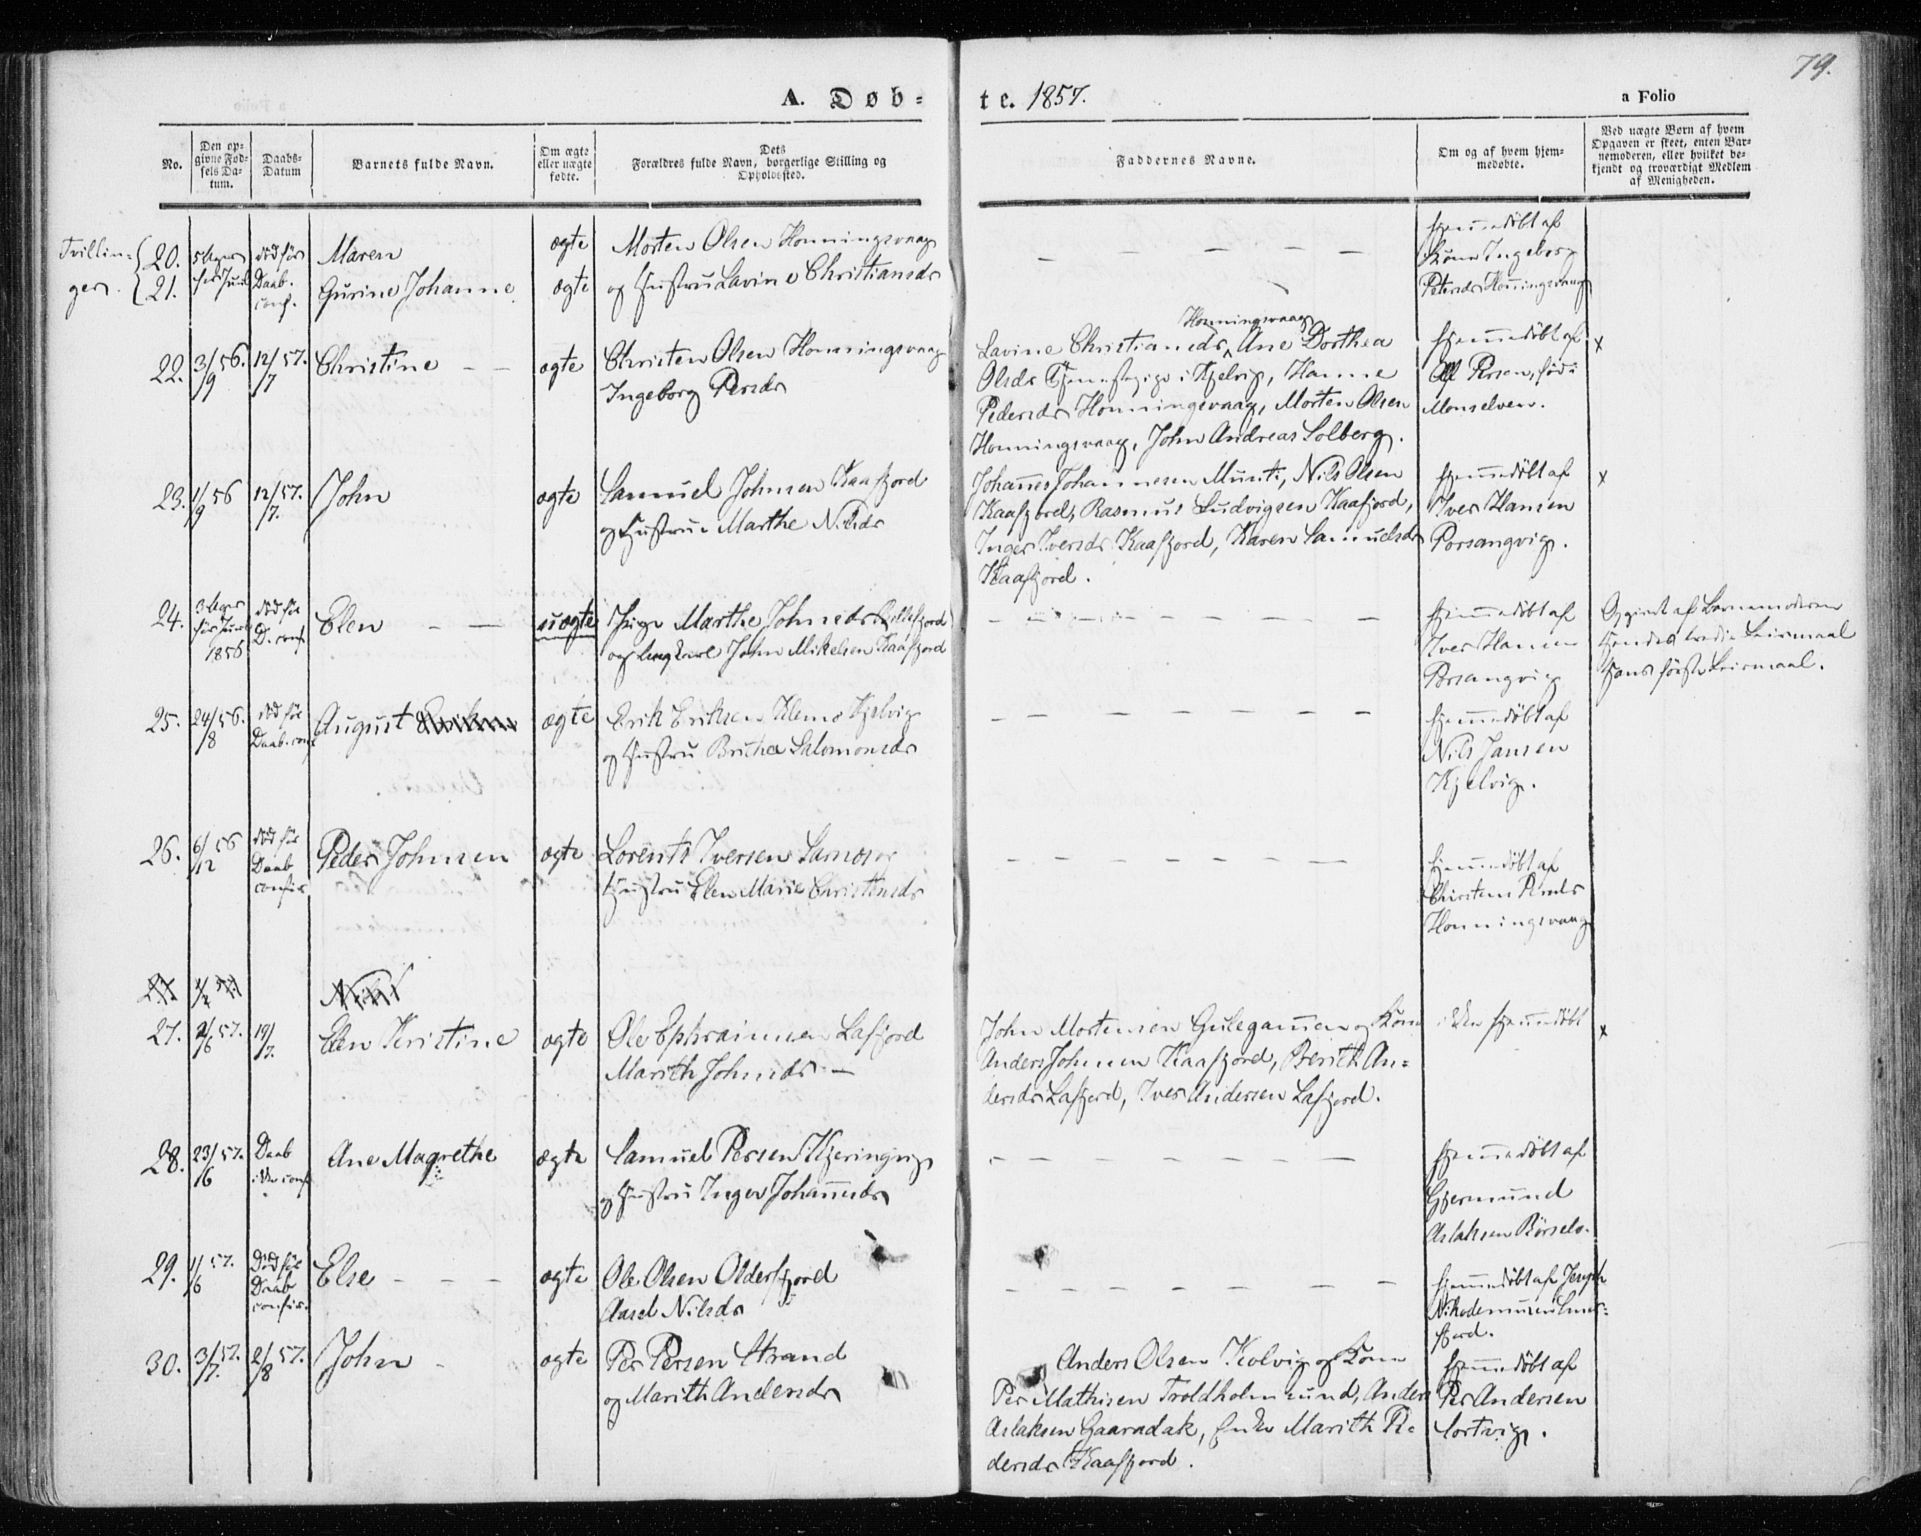 79.
A. Døb-
te. 1857.
a Folio
No.
Den op-
givne Fød-
sels Da-
tum.
Daabs-
Datum
Barnets fulde Navn.
Om ægte
eller uægte
fødte.
Dets
Forældres fulde Navn, borgerlige Stilling og
Opholdssted.
Faddernes Navne.
Om og af hvem hjem-
medøbte.
Ved uægte Børn af hvem
Opgaven er skeet, enten Bar-
nemoderen, eller hvilket be-
kjendt og troværdigt Medlem
af Menigheden.
Tvillin-
ger.
20.
21.
død før
Daab.
conf.
Maren
Gurine Johanne
ægte
ægte
Morten Olsen Honningsvaag
og Hustru Lavine Christiansdr
hjemmedøbt af
Kone Ingeborg
Petersdr Honningsvaag
22.
3/9 56.
12/7 57.
Christine
ægte
Christen Olsen Honningsvaag
Ingeborg Persdr
Honningsvaag
Lavine Christiansdr, Ane Dorthea
Olsdr Tjenestepige i Kjelvig, Hanne
Pedersdr Honningsvaag, Morten Olsen
Honningsvaag, John Andreas Solberg.
hjemmedøbt af
Persen, født i
x
23.
1/9 56
12/7 57.
John
ægte
Samuel Johnsen Kaafjord
og Hustrue Marthe Nilsdr
Johannes Johannesen Munti, Nils Olsen
Kaafjord, Rasmus Ludvigsen Kaafjord,
Inger Iversdr Kaafjord, Karen Samuelsdr
Kaafjord.
hjemmedøbt af
Iver Hansen
Porsangvig.
x
24.
3 Uger
før Juul
1856
død før
D. conf.
Elen
uægte
Pige Marthe Johnsdr
og Ungkarl John Mikelsen Kaafjord
hjemmedøbt af
Iver Hansen
Porsangvig
Opgivet af Barnemoderen
Hendes tredie Leiermaal
Hans første Leiermaal.
25.
24/8 56.
død før
Daab. conf
August
ægte
Erik Eriksen Klemo Kjelvig
og Hustru Britha Salomonsdr
hjemmedøbt af
Nils Jansen
Kjelvig.
26.
6/12 56
død før
Daab
confir
Peder Johnsen
ægte
Lorents Iversen
Hustru Elen Marie Christensdr
hjemmedøbt af
Christen
Honningsvaag
27.
2/6 57.
19/7.
Elen Kristine
ægte
Ole Ephraimsen Lafjord
Marith Johnsdr
John Mortensen Gulegammen og Kone
Anders Johnsen Kaafjord, Berith An-
dersdr Lafjord, Iver Andersen Lafjord.
ikke hjemmedøbt
x
28.
23/6 57.
Daab
ikke conf
Ane Magrethe
ægte
Samuel Persen Kjeringvig
og Hustru Inger Johannesdr
hjemmedøbt af
Gjermund
Aslaksen Børselv.
29.
1/6 57.
Død før
Daab
confir.
Else
ægte
Ole Olsen Olderfjord
Aasel Nilsdr
hjemmedøbt af Joseph
Nikodemusen Smør-
fjord.
30.
3/7 57.
2/8 57.
John
ægte
Per Persen Strand
og Marith Andersdr
Anders Olsen Kolvig og Kone
Per Mathisen Troldholmsund, Anders
Aslaksen Gaaradak, Enke Marith Pe-
dersdr Kaafjord.
hjemmedøbt af
Per Andersen
Sortvig.